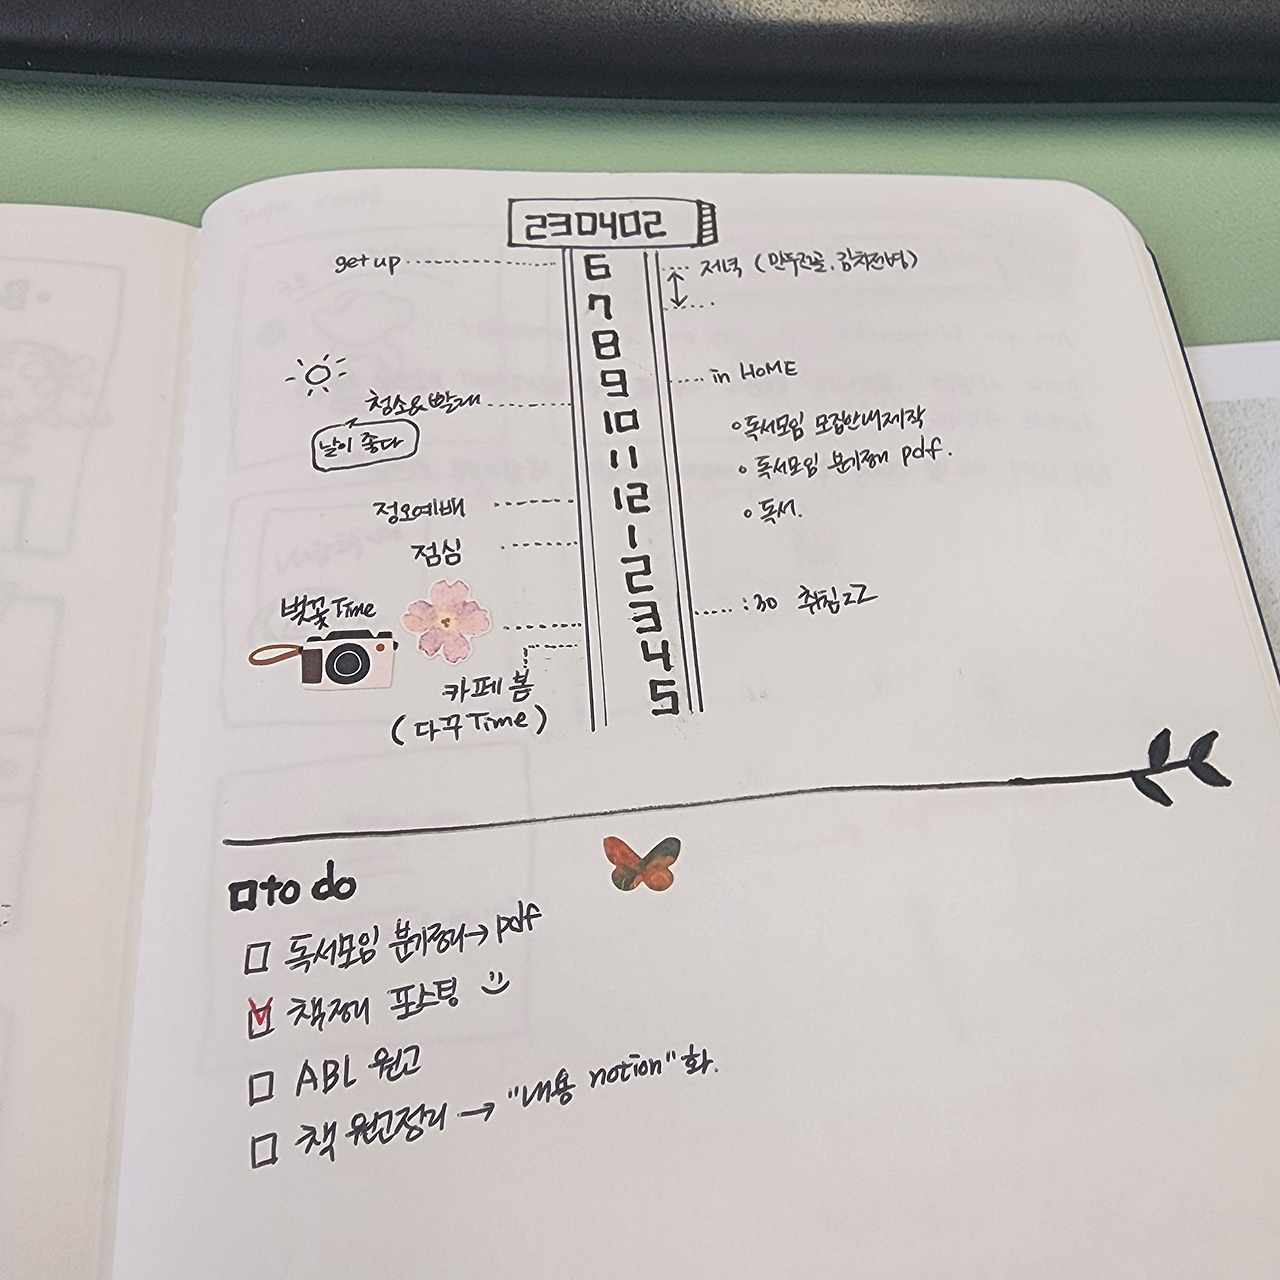 230402
get up
6
저녁 (만두전골, 김치전병)
7
8
9
in HOME
청소&빨래
날이 좋다
10
독서모임 모집안내제작
11
독서모임 분기정리 pdf.
12
정오예배
독서.
점심
1
2
벚꽃Time
3
:30 취침zz
4
카페 봄
(다꾸Time)
5
to do
독서모임 분기정리→pdf
책정리 포스팅
ABL 원고
책 원고정리 → "내용 notion"화.